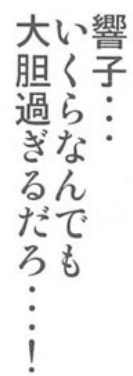 響子・・・
いくらなんでも
大胆過ぎるだろ・・・!